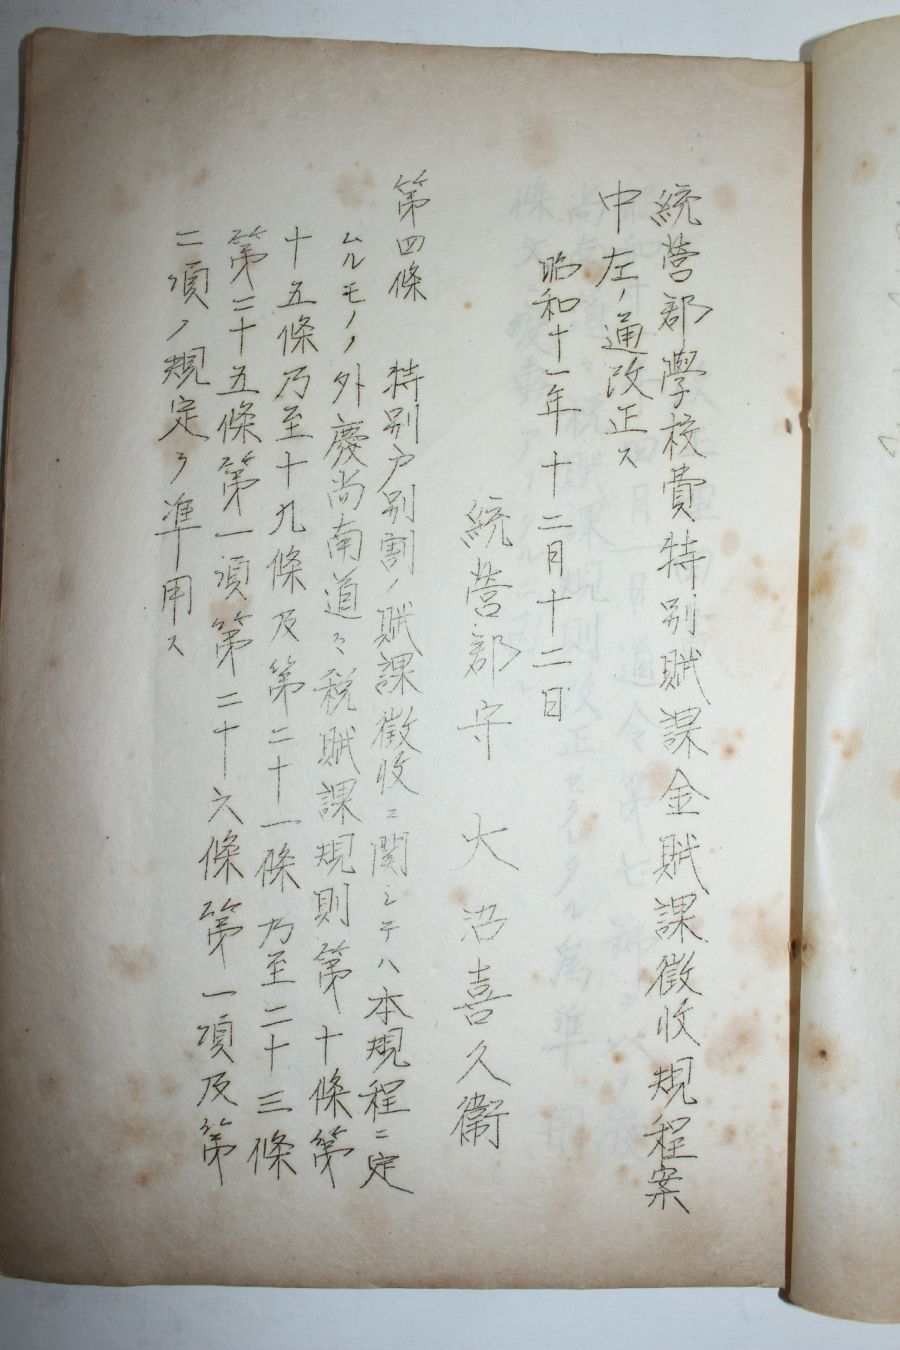 統營郡學校費特別賦課金賦課徴收規程案
中左ノ通改正ス
昭和十一年十二月十二日
統營郡守 大沼喜久衞
第四條 特別戸別割ノ賦課徴收ニ関シテハ本規程ニ定
ムルモノノ外慶尚南道々税賦課規則第十條第
十五條乃至十九條及第二十一條乃至二十三條
第二十五條第一項第二十六條第一項及第
二項ノ規定ヲ準用ス